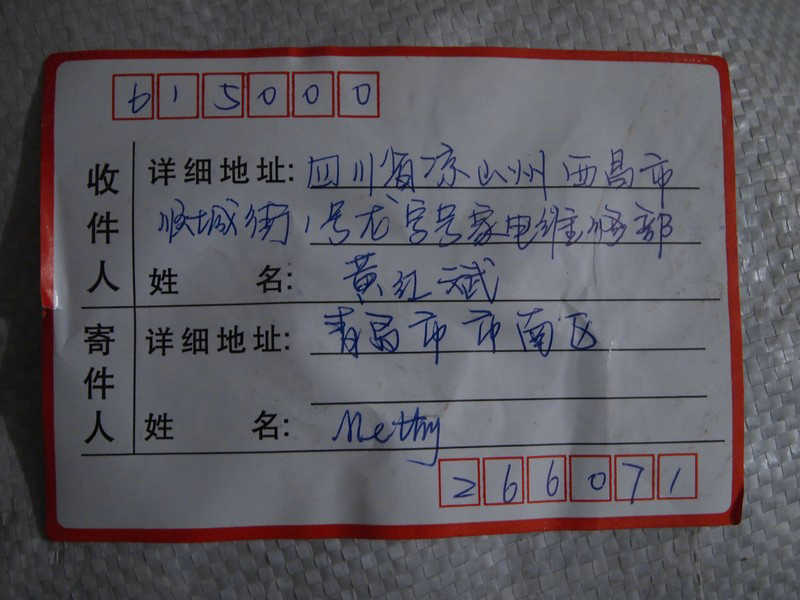 615000
收件人
详细地址: 四川省凉山州西昌市
顺城街1号龙字号家电维修部
姓 名: 黄红斌
寄件人
详细地址: 青岛市市南区
姓 名:
266071